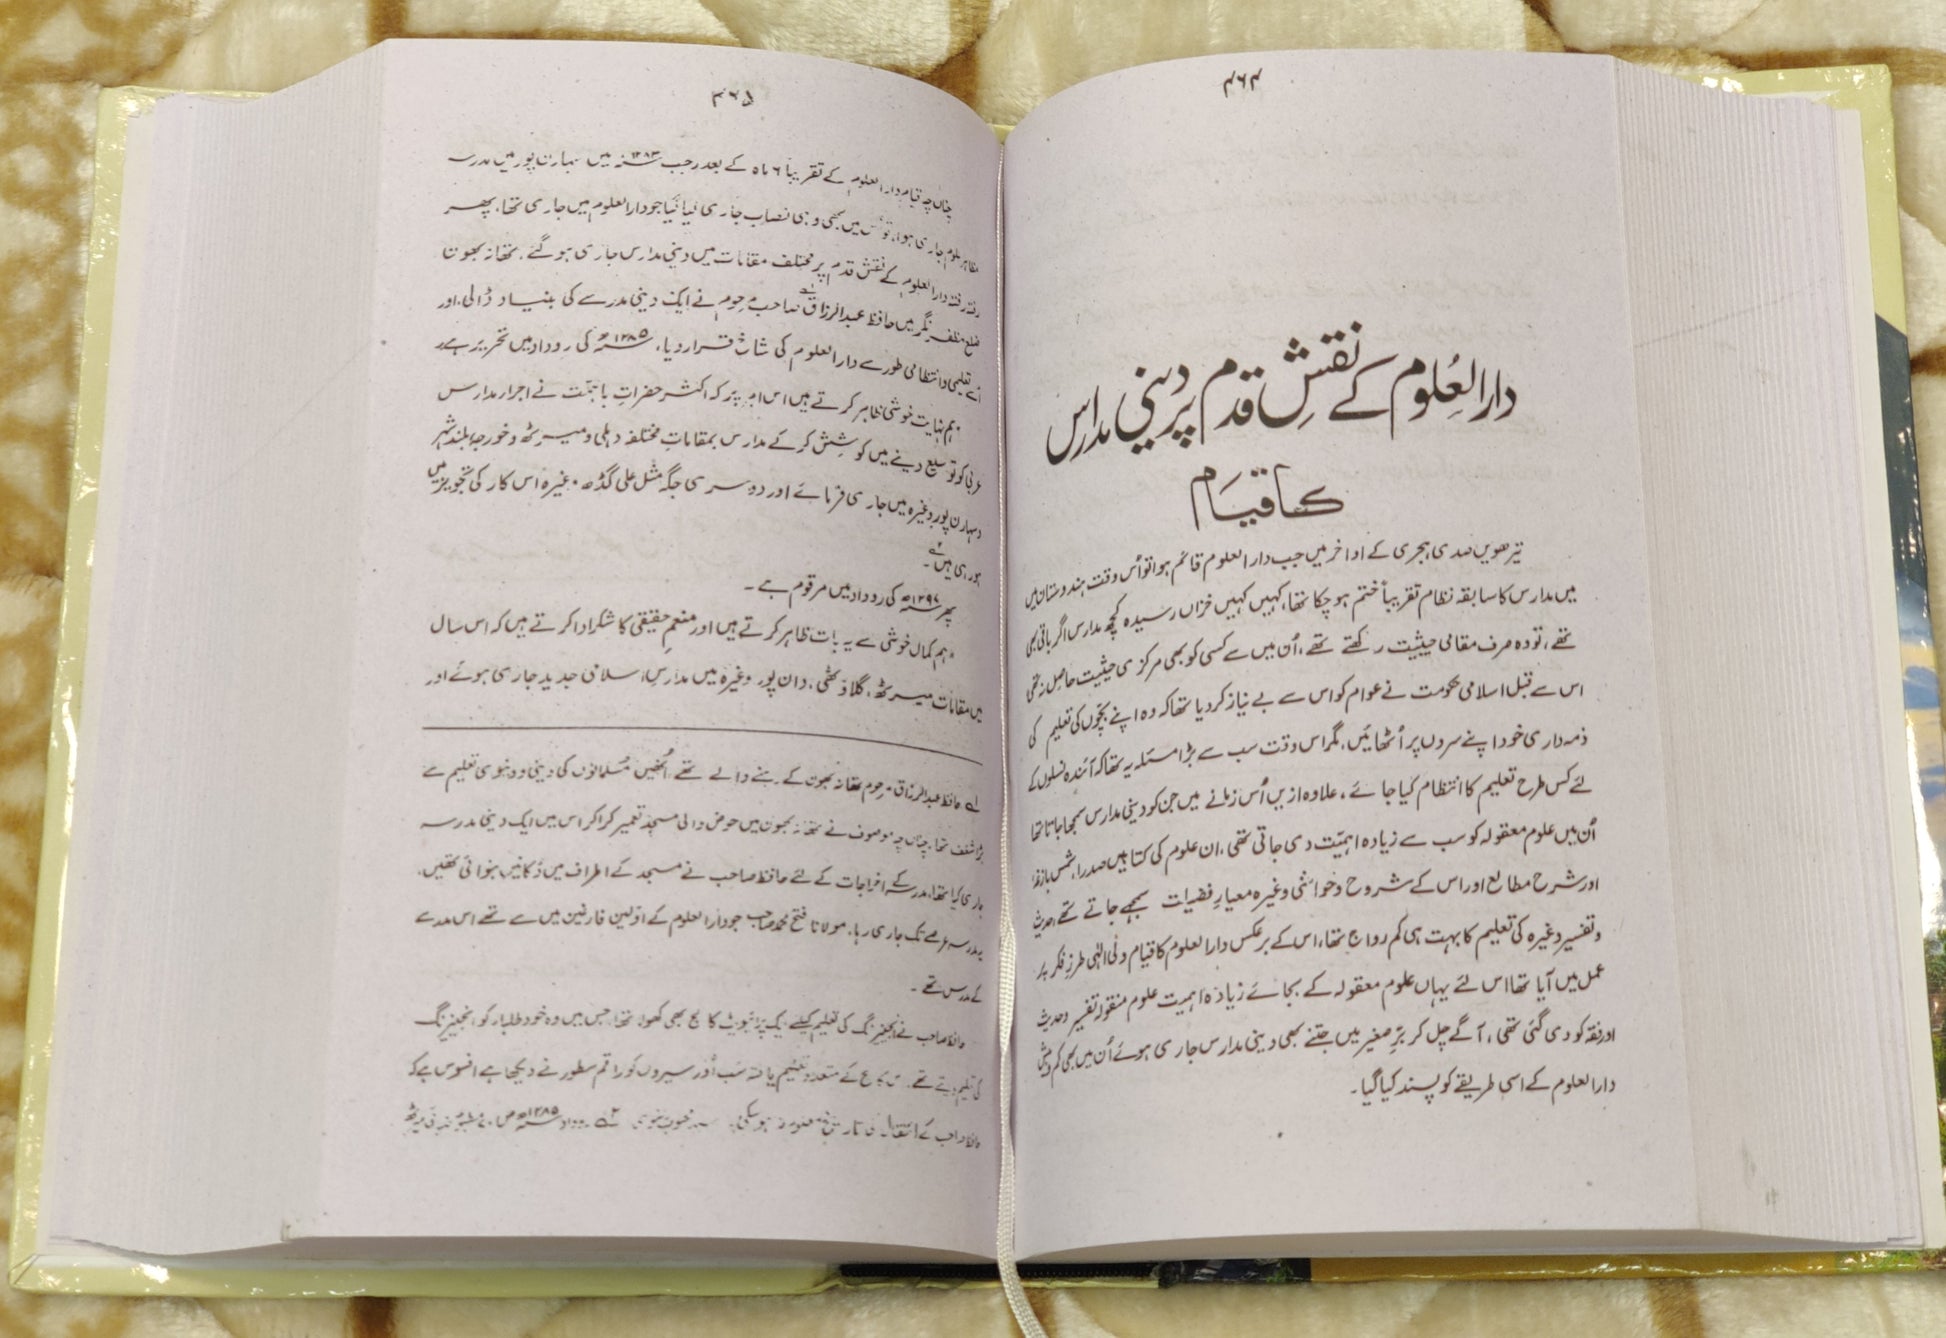 ۴۶۴
دارالعُلوم کے نقشِ قدم پر دینی مدارس
کا قیام
تیرھویں صدی ہجری کے اواخر میں جب دارالعلوم قائم ہوا تو اُس وقت ہندوستان میں
میں مدارس کا سابقہ نظام تقریباً ختم ہو چکا تھا، کہیں کہیں خزاں رسیدہ کچھ مدارس اگر باقی بھی
تھے، تو وہ صرف مقامی حیثیت رکھتے تھے، اُن میں سے کسی کو بھی مرکزی حیثیت حاصل نہ تھی
اس سے قبل اسلامی حکومت نے عوام کو اس سے بے نیاز کر دیا تھا کہ وہ اپنے بچّوں کی تعلیم کی
ذمہ داری خود اپنے سروں پر اُٹھائیں، مگر اس وقت سب سے بڑا مسئلہ یہ تھا کہ آئندہ نسلوں کے
لئے کس طرح تعلیم کا انتظام کیا جائے، علاوہ ازیں اُس زمانے میں جن کو دینی مدارس سمجھا جاتا تھا
اُن میں علوم معقولہ کو سب سے زیادہ اہمیّت دی جاتی تھی، ان علوم کی کتابیں صدرا، شمس بازغہ
اور شرح مطالع اور اس کے شروح و حواشی وغیرہ معیارِ فضیلت سمجھے جاتے تھے، حدیث
و تفسیر وغیرہ کی تعلیم کا بہت ہی کم رواج تھا، اس کے برعکس دارالعلوم کا قیام ولی اللّٰہی طرزِ فکر پر
عمل میں آیا تھا اس لئے یہاں علوم معقولہ کے بجائے زیادہ اہمیت علوم منقولہ تفسیر و حدیث
اور فقہ کو دی گئی تھی، آگے چل کر برّ صغیر میں جتنے بھی دینی مدارس جاری ہوئے اُن میں بھی کم و بیش
دارالعلوم کے اسی طریقے کو پسند کیا گیا۔
۴۶۵
چناں چہ قیام دارالعلوم کے تقریباً ۶ ماہ کے بعد رجب ۱۲۸۳ھ میں سہارن پور میں مدرسہ
مظاہر علوم جاری ہوا، تو اس میں بھی وہی نصاب جاری کیا گیا جو دارالعلوم میں جاری تھا، پھر
رفتہ رفتہ دارالعلوم کے نقش قدم پر مختلف مقامات میں دینی مدارس جاری ہو گئے، تھانہ بھون
ضلع مظفر نگر میں حافظ عبدالرزاق صاحب مرحوم نے ایک دینی مدرسے کی بنیاد ڈالی، اور
اُسے تعلیمی و انتظامی طور سے دارالعلوم کی شاخ قرار دیا، ۱۲۸۵ھ کی روداد میں تحریر ہے،
"ہم نہایت خوشی ظاہر کرتے ہیں اس امر پر کہ اکثر حضراتِ باہمّت نے اجراء مدارس
عربی کو توسیع دینے میں کوشِش کر کے مدارس بمقاماتِ مختلفہ دہلی و میرٹھ و خورجہ و بلند شہر
و سہارن پور وغیرہ میں جاری فرمائے اور دوسری جگہ مثل علی گڈھ وغیرہ اس کار کی تجویزیں
ہو رہی ہیں۲۔
پھر ۱۲۹۷ھ کی روداد میں مرقوم ہے۔
"ہم کمال خوشی سے یہ بات ظاہر کرتے ہیں اور منعمِ حقیقی کا شکر ادا کرتے ہیں کہ اس سال
میں مقامات میرٹھ، گلاؤٹھی، دان پور وغیرہ میں مدارس اسلامی جدید جاری ہوئے اور
حافظ عبدالرزاق مرحوم تھانہ بھون کے رہنے والے تھے، اُنھیں مُسلمانوں کی دینی و دنیوی تعلیم سے
بڑا شغف تھا، چناں چہ موصوف نے تھانہ بھون میں حوض والی مسجد تعمیر کرا کر اس میں ایک دینی مدرسہ
جاری کیا تھا، مدرسہ کے اخراجات کے لئے حافظ صاحب نے مسجد کے اطراف میں دُکانیں بنوائی تھیں،
یہ مدرسہ عرصے تک جاری رہا، مولانا فتح محمد صاحب جو دارالعلوم کے اوّلین فارغین میں سے تھے اس مدرسے
کے مدرس تھے۔
حافظ صاحب نے انجینیرنگ کی تعلیم کیلئے ایک پرائیویٹ کالج بھی کھولا تھا، جس میں وہ خود طلباء کو انجینیرنگ
کی تعلیم دیتے تھے، اس کالج کے متعدد تعلیم یافتہ سب اُوَرسیروں کو راقم سطور نے دیکھا ہے افسوس ہے کہ
حافظ صاحب کے انتقال کی تاریخ معلوم نہ ہو سکی۔ سید محبوب رضوی ۲ روداد ۱۲۸۵ھ ص ۷۰